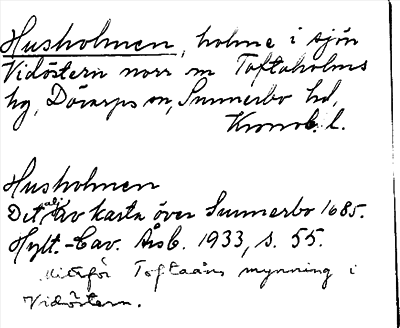 Husholmen, holme i sjön
Vidöstern norr om Toftaholms
hg, Dörarps sn, Sunnerbo hd,
Kronob. l.
Husholmen
Det alj av karta över Sunnerbo 1685.
Hylt.-Cav. Årsb. 1933, s. 55.
Mittför Toftaåns mynning i
Vidöstern.